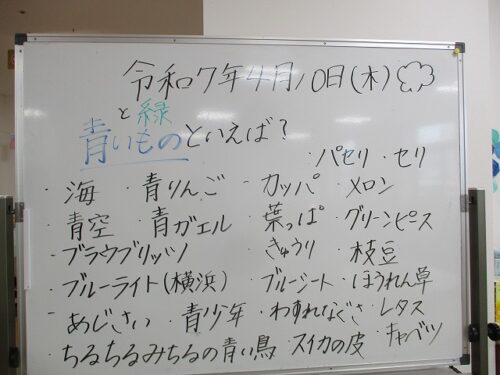 令和7年4月10日(木)
と緑
青いものといえば?
パセリ・セリ
・海 ・青りんご ・カッパ ・メロン
・青空 青ガエル ・葉っぱ ・グリーンピース
・ブラウブリッツ きゅうり ・枝豆
・ブルーライト(横浜) ・ブルーシート・ほうれん草
・あじさい 青少年 ・わすれなぐさ・レタス
・ちるちるみちるの青い鳥・スイカの皮・キャベツ